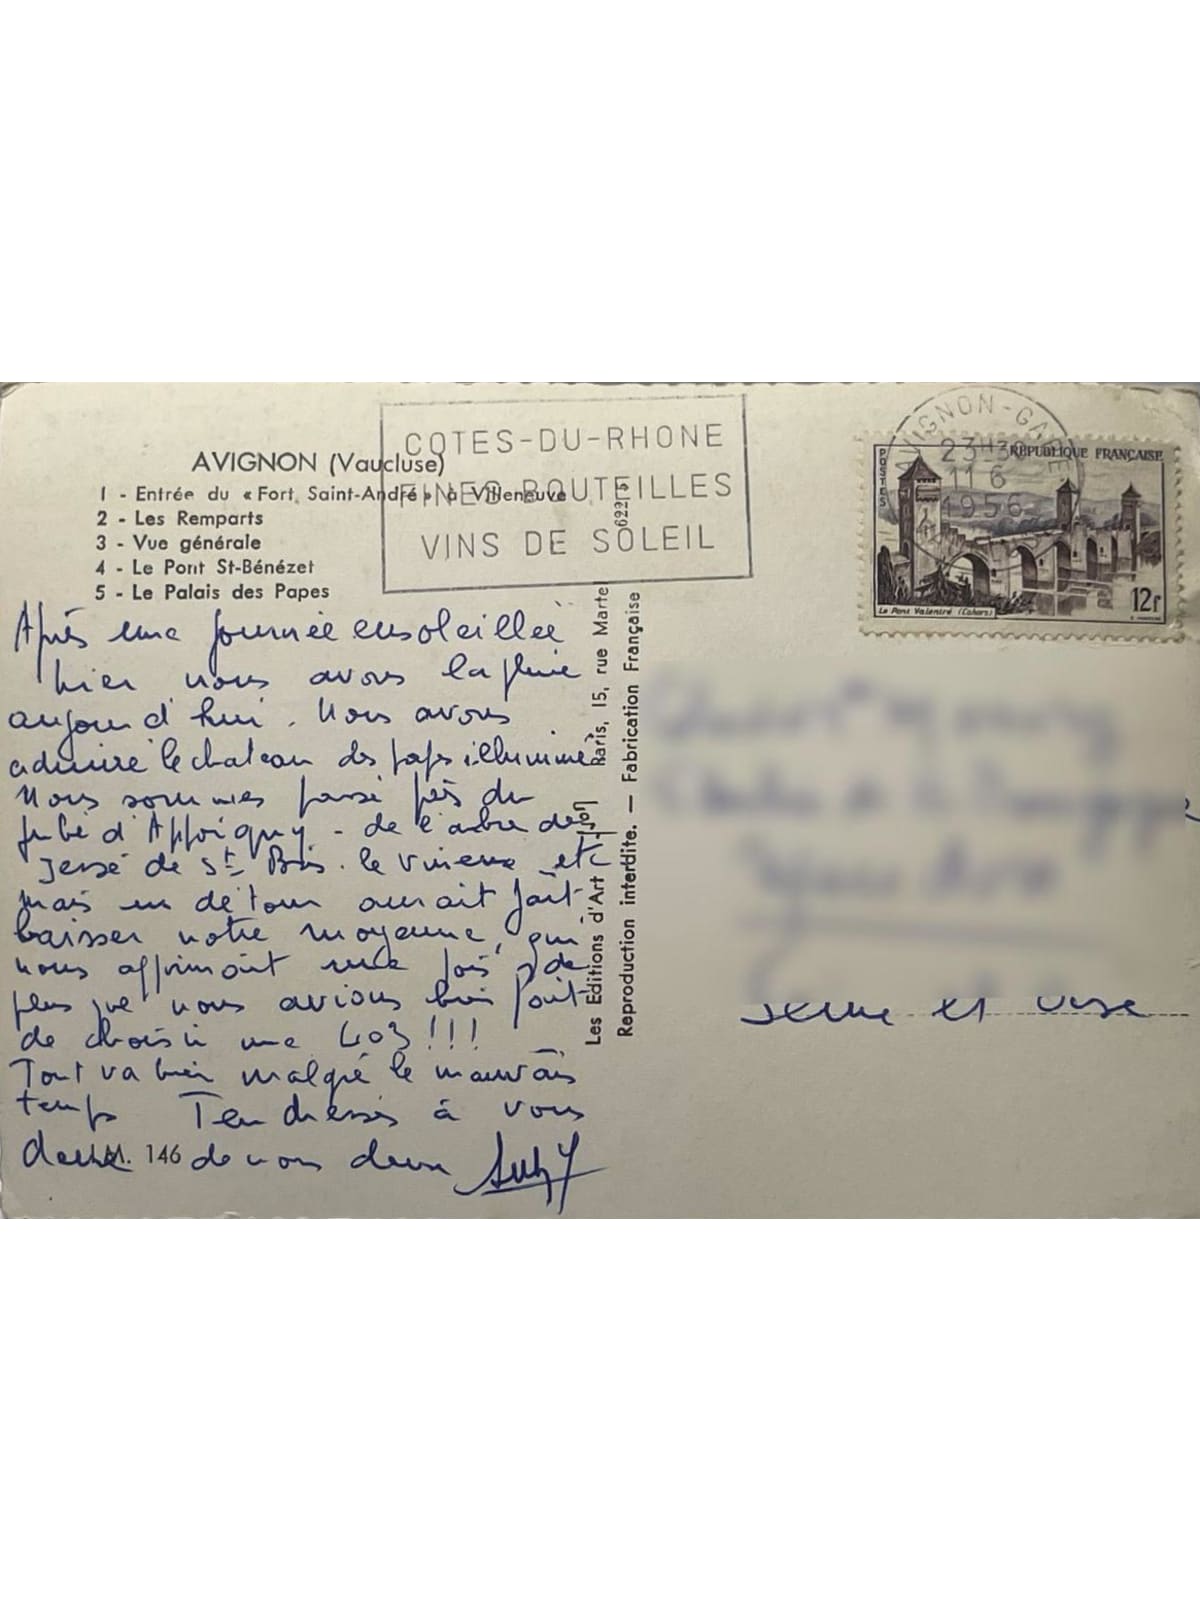 AVIGNON (Vaucluse)
1 - Entrée du « Fort Saint-André » à Villeneuve
2 - Les Remparts
3 - Vue générale
4 - Le Pont St-Bénézet
5 - Le Palais des Papes
COTES-DU-RHONE
FINES BOUTEILLES
VINS DE SOLEIL
AVIGNON-GARE
23H30
11 6
1956
POSTES
RÉPUBLIQUE FRANÇAISE
Le Pont Valentré (Cahors)
12F
Après une journée ensoleillée
hier nous avons la pluie
aujourd'hui. Nous avons
admiré le chateau des papes illuminé
Nous sommes passé près du
jubé d'Appoigny - de l'arbre de
Jessé de St Bris. le etc
mais un détour aurait fait
baisser notre moyenne, qui
nous affirmait une fois de
plus que nous avions bien fait
de choisir une 403 !!!
Tout va bien malgré le mauvais
temps Tendresses à vous
deux de nous deux
M. 146
Les Editions d'Art Paris, 15, rue Martel
Reproduction interdite. — Fabrication Française
622 5
Seine et Oise